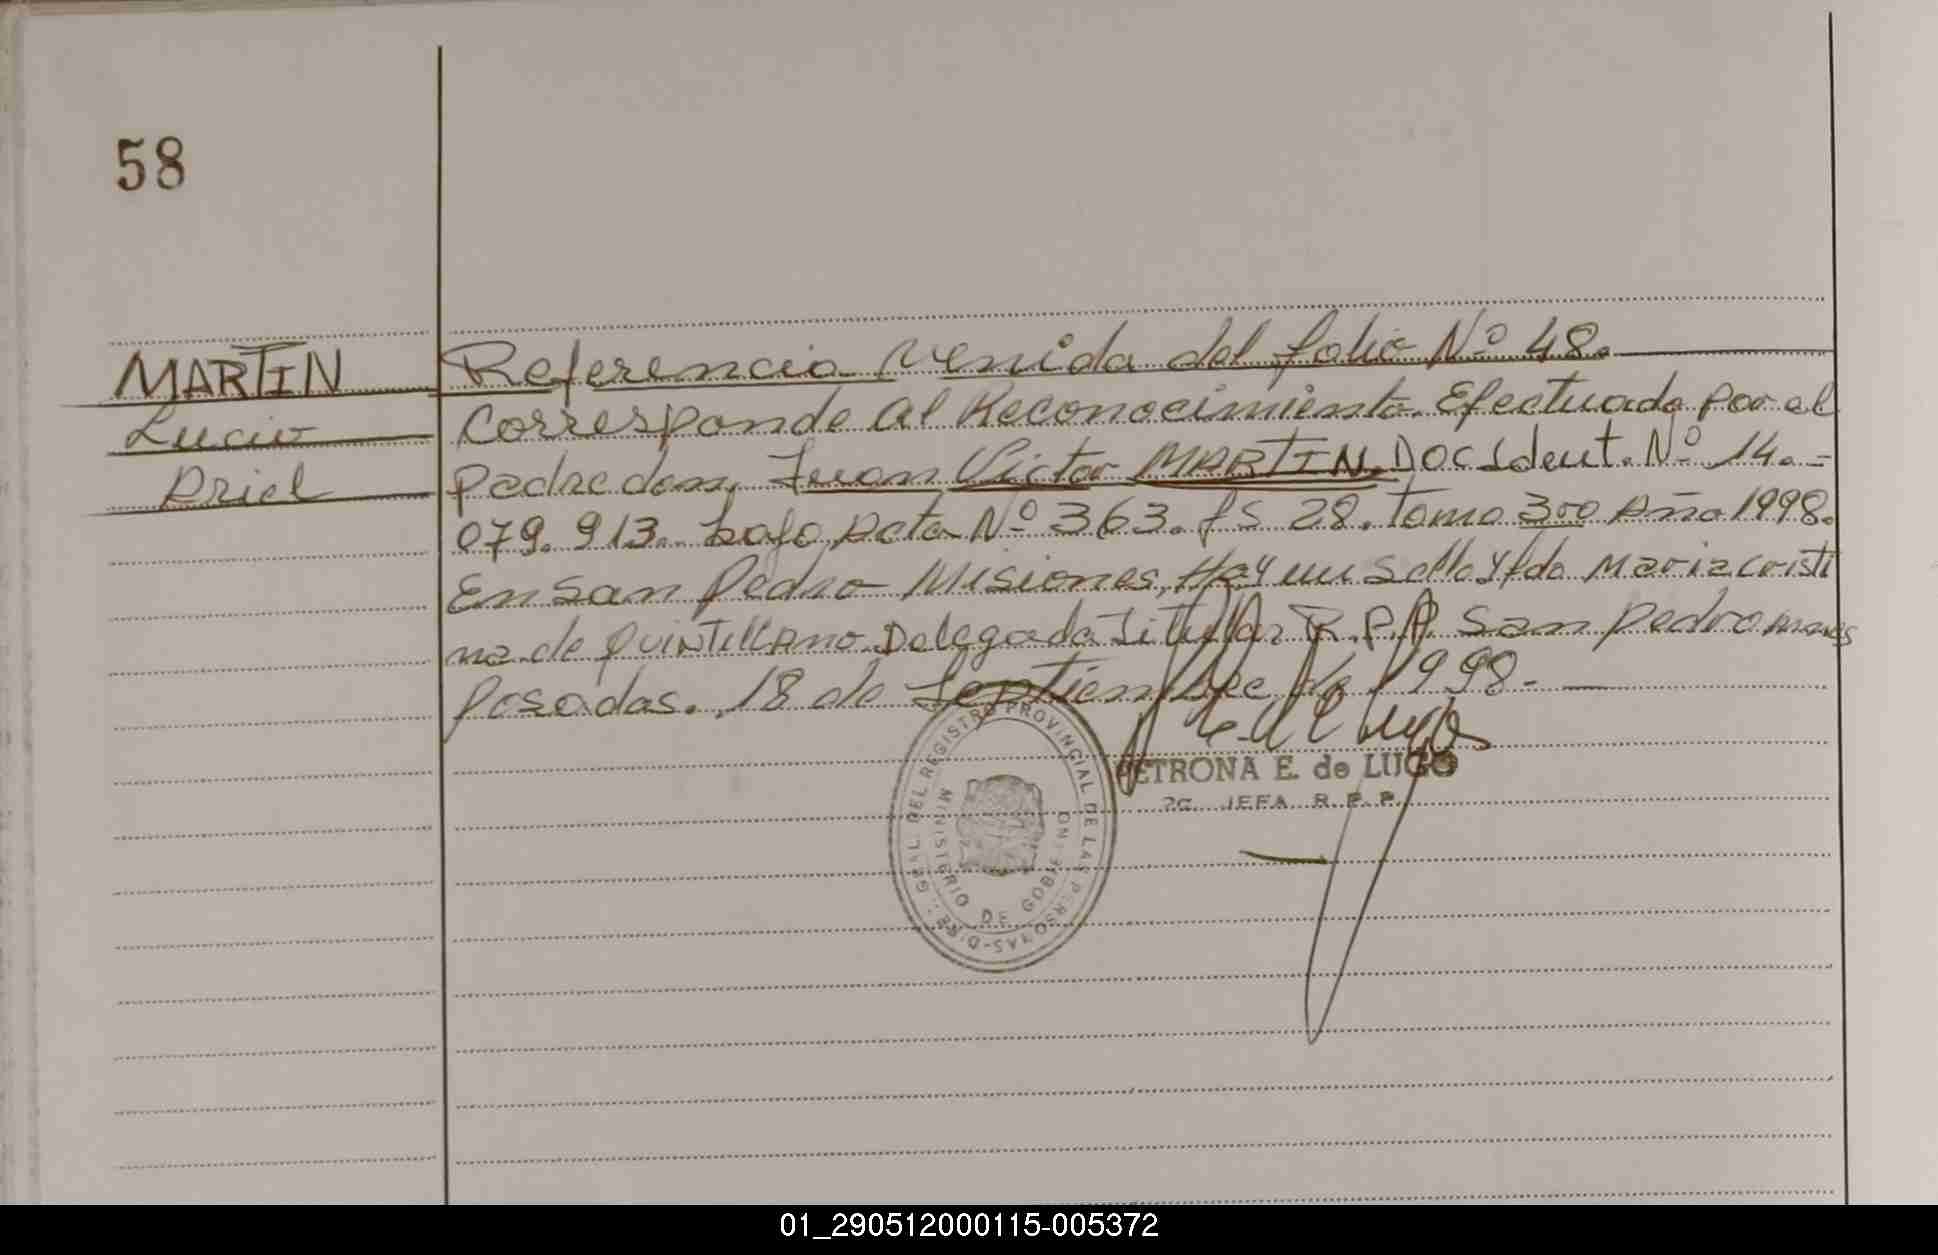 58
MARTIN
Lucio
Ariel
Referencia venida del folio Nº 48.
Corresponde al Reconocimiento Efectuado por el
padre don, Juan Victor MARTIN, Doc Ident. Nº 14.-
079.913. bajo Acta Nº 363. fs 28. Tomo 300 Año 1998.
En San Pedro Misiones, Hay un Sello y fdo Maria Cristi
na de QUINTILLANO. Delegada Titular R.P.P. San Pedro Mnes
Posadas. 18 de Septiembre de 1998.-
PETRONA E. de LUGO
JEFA R.P.P.
DIRE. GRAL. DEL REGISTRO PROVINCIAL DE LAS PERSONAS
MINISTERIO DE GOBIERNO
01_290512000115-005372